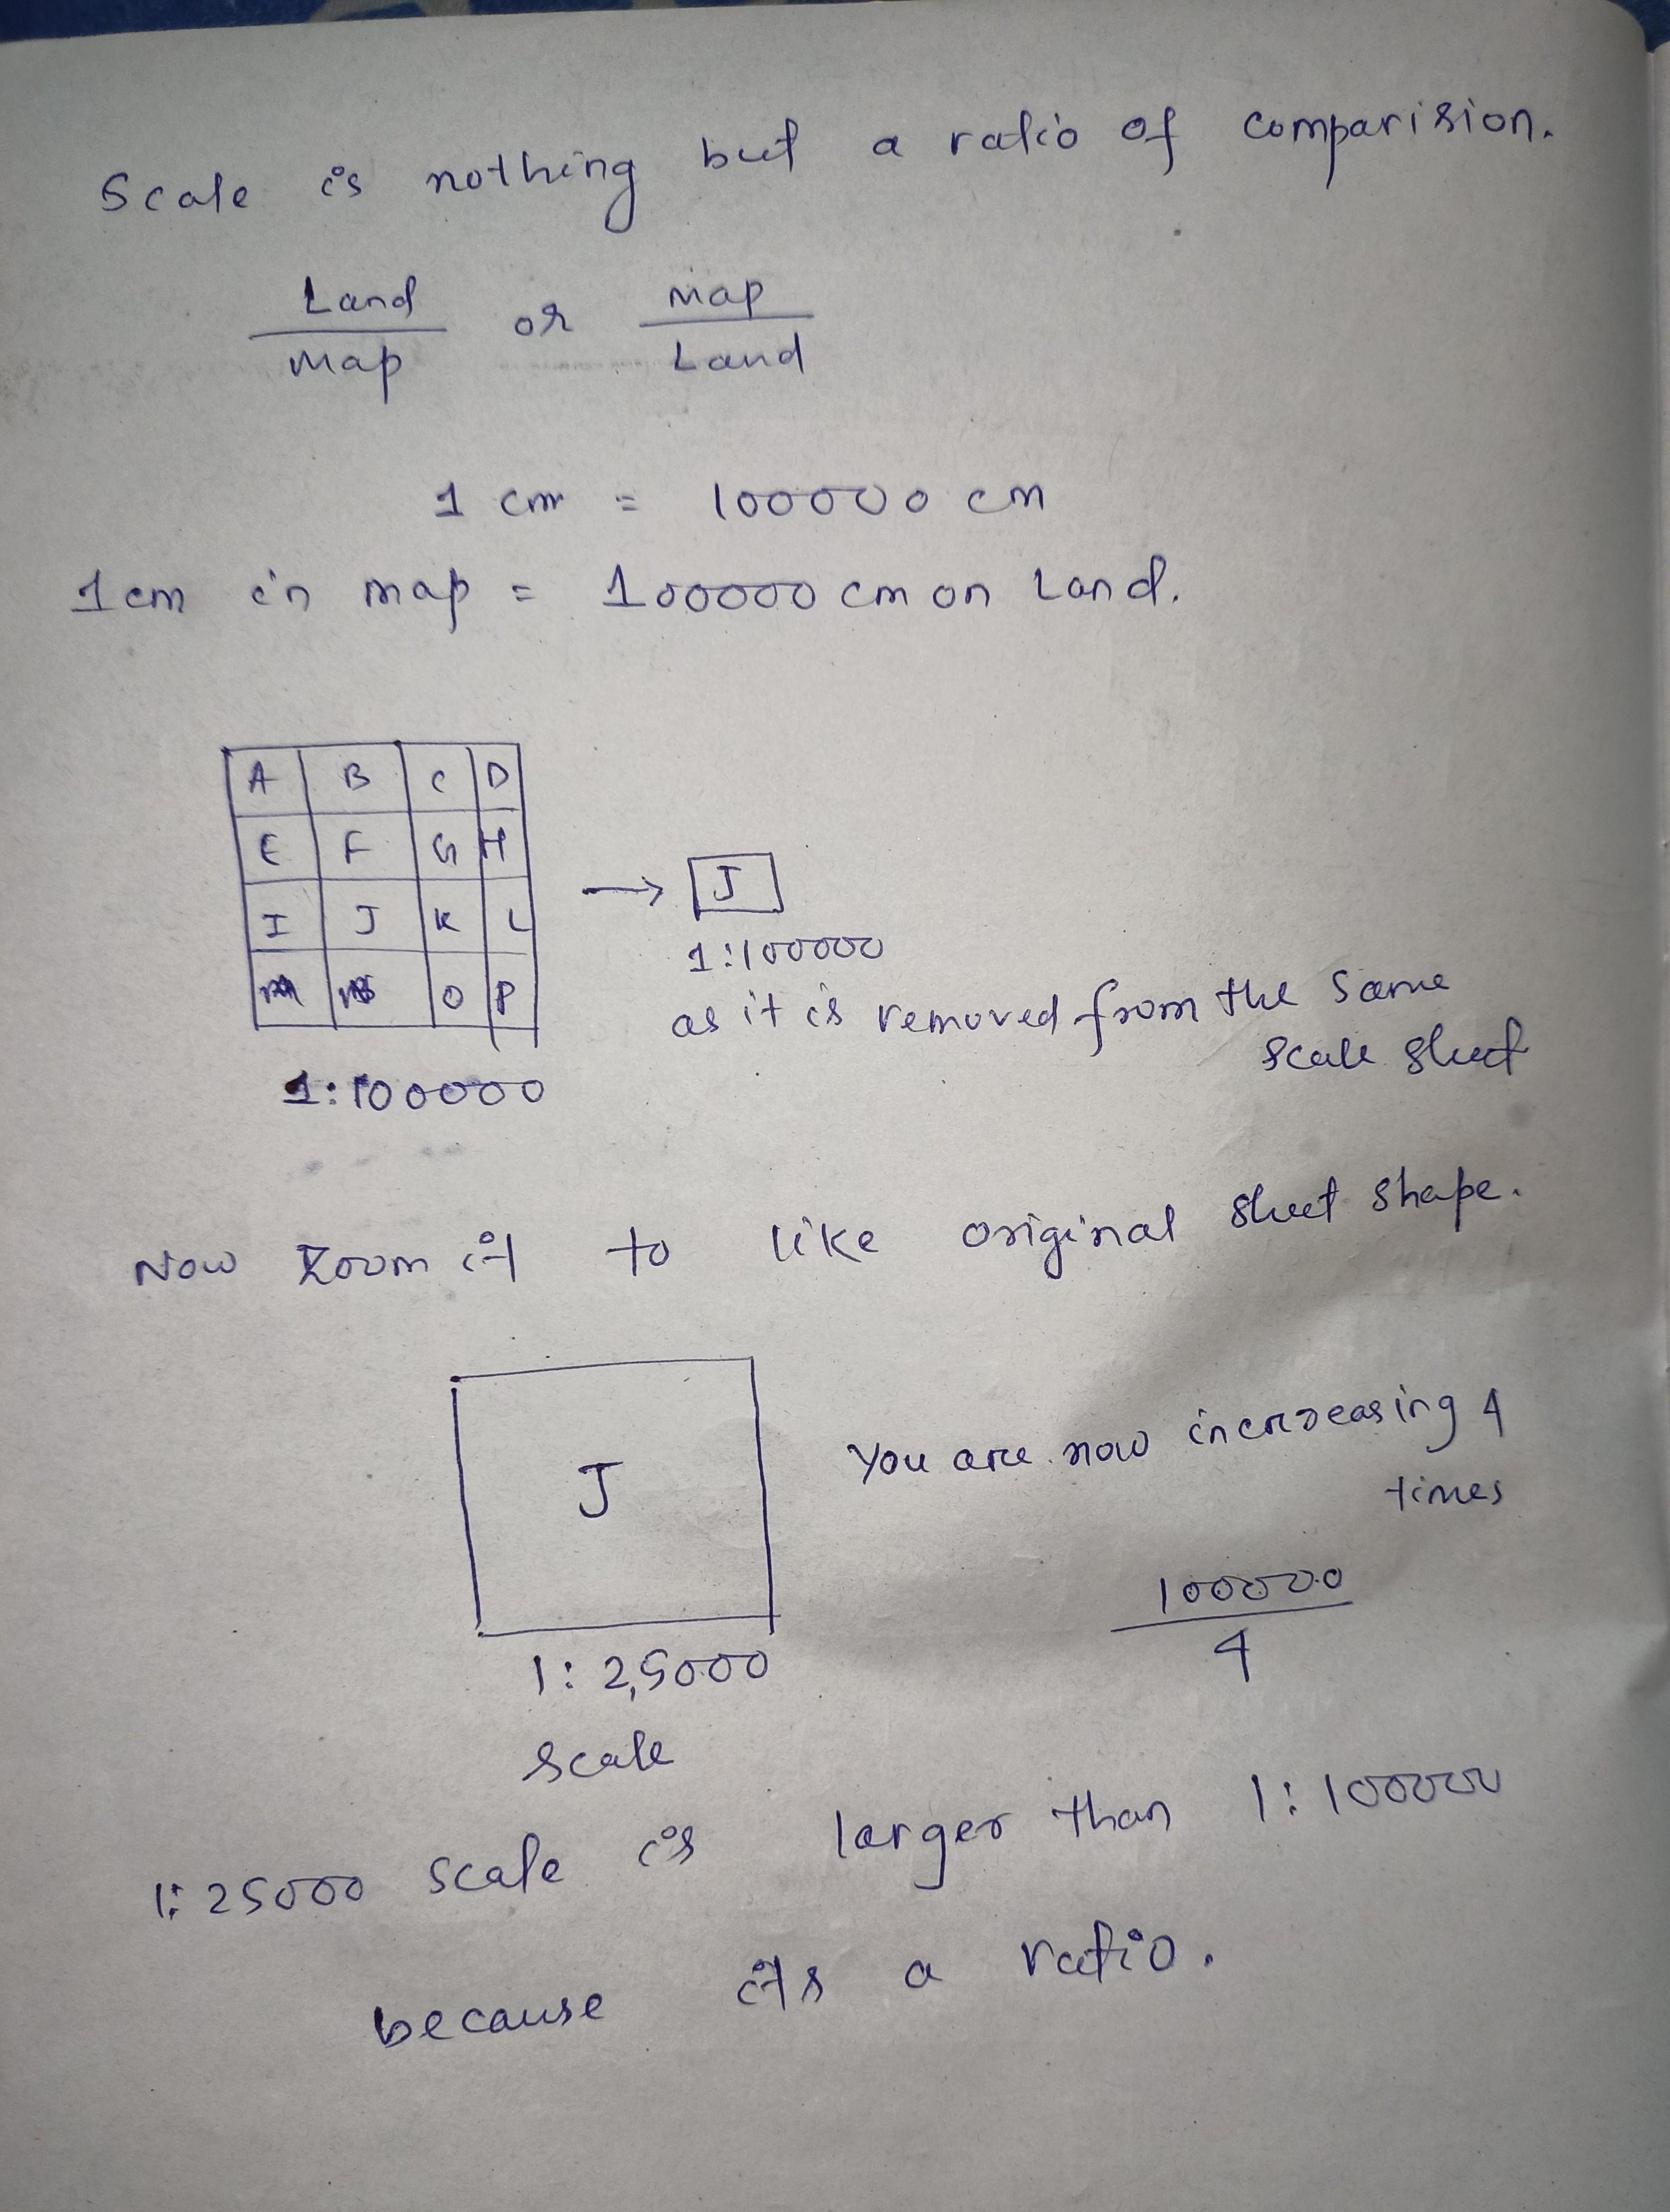 Scale is nothing but a ratio of comparision.
Land or map
Map Land
1 cm = 100000 cm
1 cm in map = 100000 cm on Land.
A B C D
E F G H
I J K L
O P
→ J
1:100000
as it is removed from the same
scale sheet
1:100000
Now Zoom it to like original sheet shape.
J
You are now increasing 4
times
100000
4
1: 2,5000
scale
1:25000 scale is larger than 1:100000
because its a ratio.